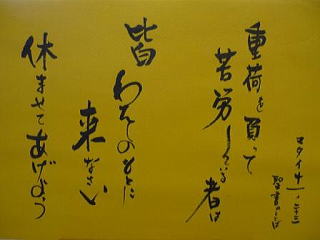 マタイ十一
聖書のことば
重荷を負って
苦労している者は
皆
わたしのもとに
来なさい
休ませてあげよう